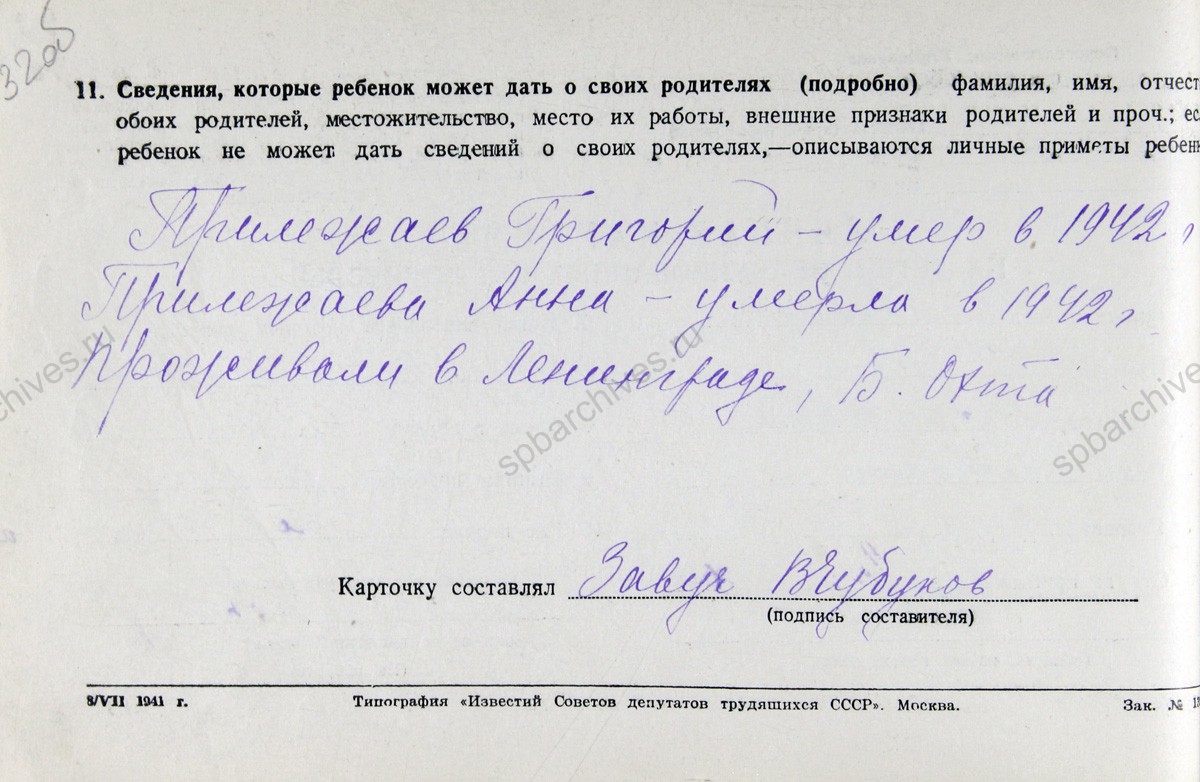 320б
11. Сведения, которые ребенок может дать о своих родителях (подробно) фамилия, имя, отчест
обоих родителей, местожительство, место их работы, внешние признаки родителей и проч.; ес
ребенок не может дать сведений о своих родителях,—описываются личные приметы ребен
Прилежаев Григорий – умер в 1942 г
Прилежаева Анна – умерла в 1942 г
Проживали в Ленинграде, Б. Охта
chives.ru
spbarchives.ru
spbarchives
Карточку составлял Завуч ВЧубуков
(подпись составителя)
8/VII 1941 г. Типография «Известий Советов депутатов трудящихся СССР». Москва. Зак. №